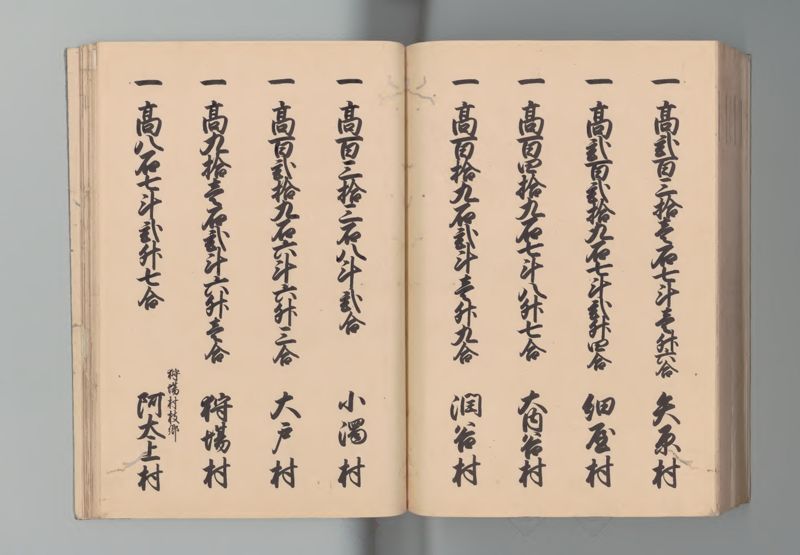 一 高弐百三拾壱石七斗壱升六合 矢原村
一 高弐百弐拾九石七斗弐升四合 細屋村
一 高百四拾九石七斗八升七合 大内谷村
一 高百拾九石弐斗壱升九合 潤谷村
一 高百三拾三石八斗弐合 小濁村
一 高百弐拾九石六斗六升三合 大戸村
一 高九拾壱石弐斗六升壱合 狩場村
狩場村枝郷
一 高八石七斗弐升七合 阿太上村